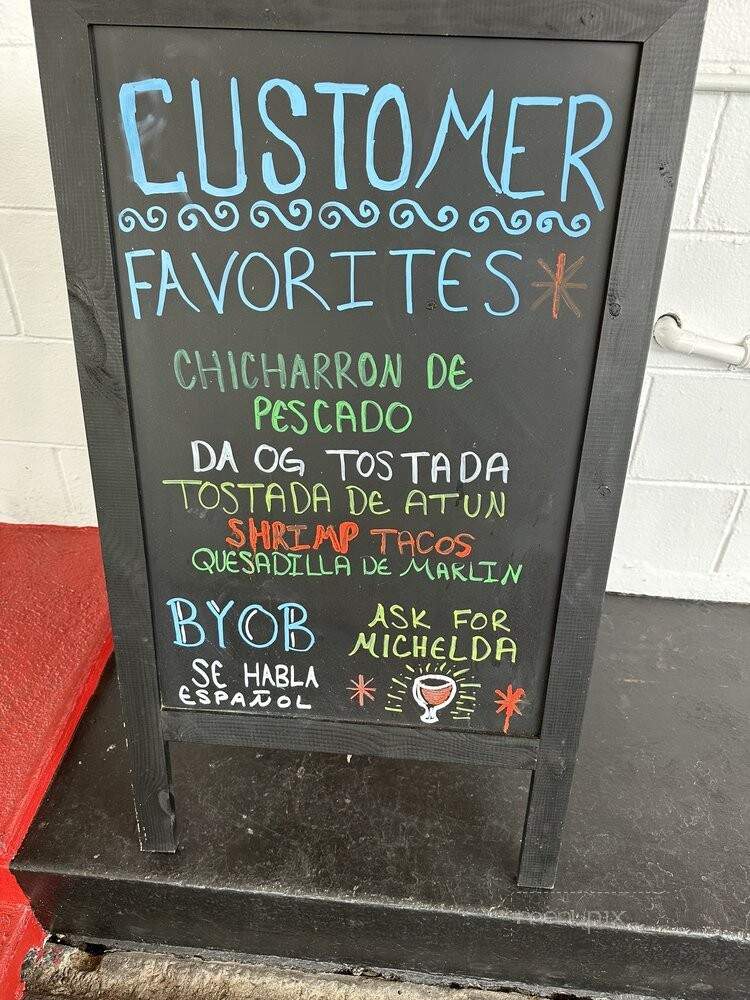 CUSTOMER
FAVORITES
CHICHARRON DE
PESCADO
DA OG TOSTADA
TOSTADA DE ATUN
SHRIMP TACOS
QUESADILLA DE MARLIN
BYOB
SE HABLA
ESPAÑOL
ASK FOR
MICHELDA